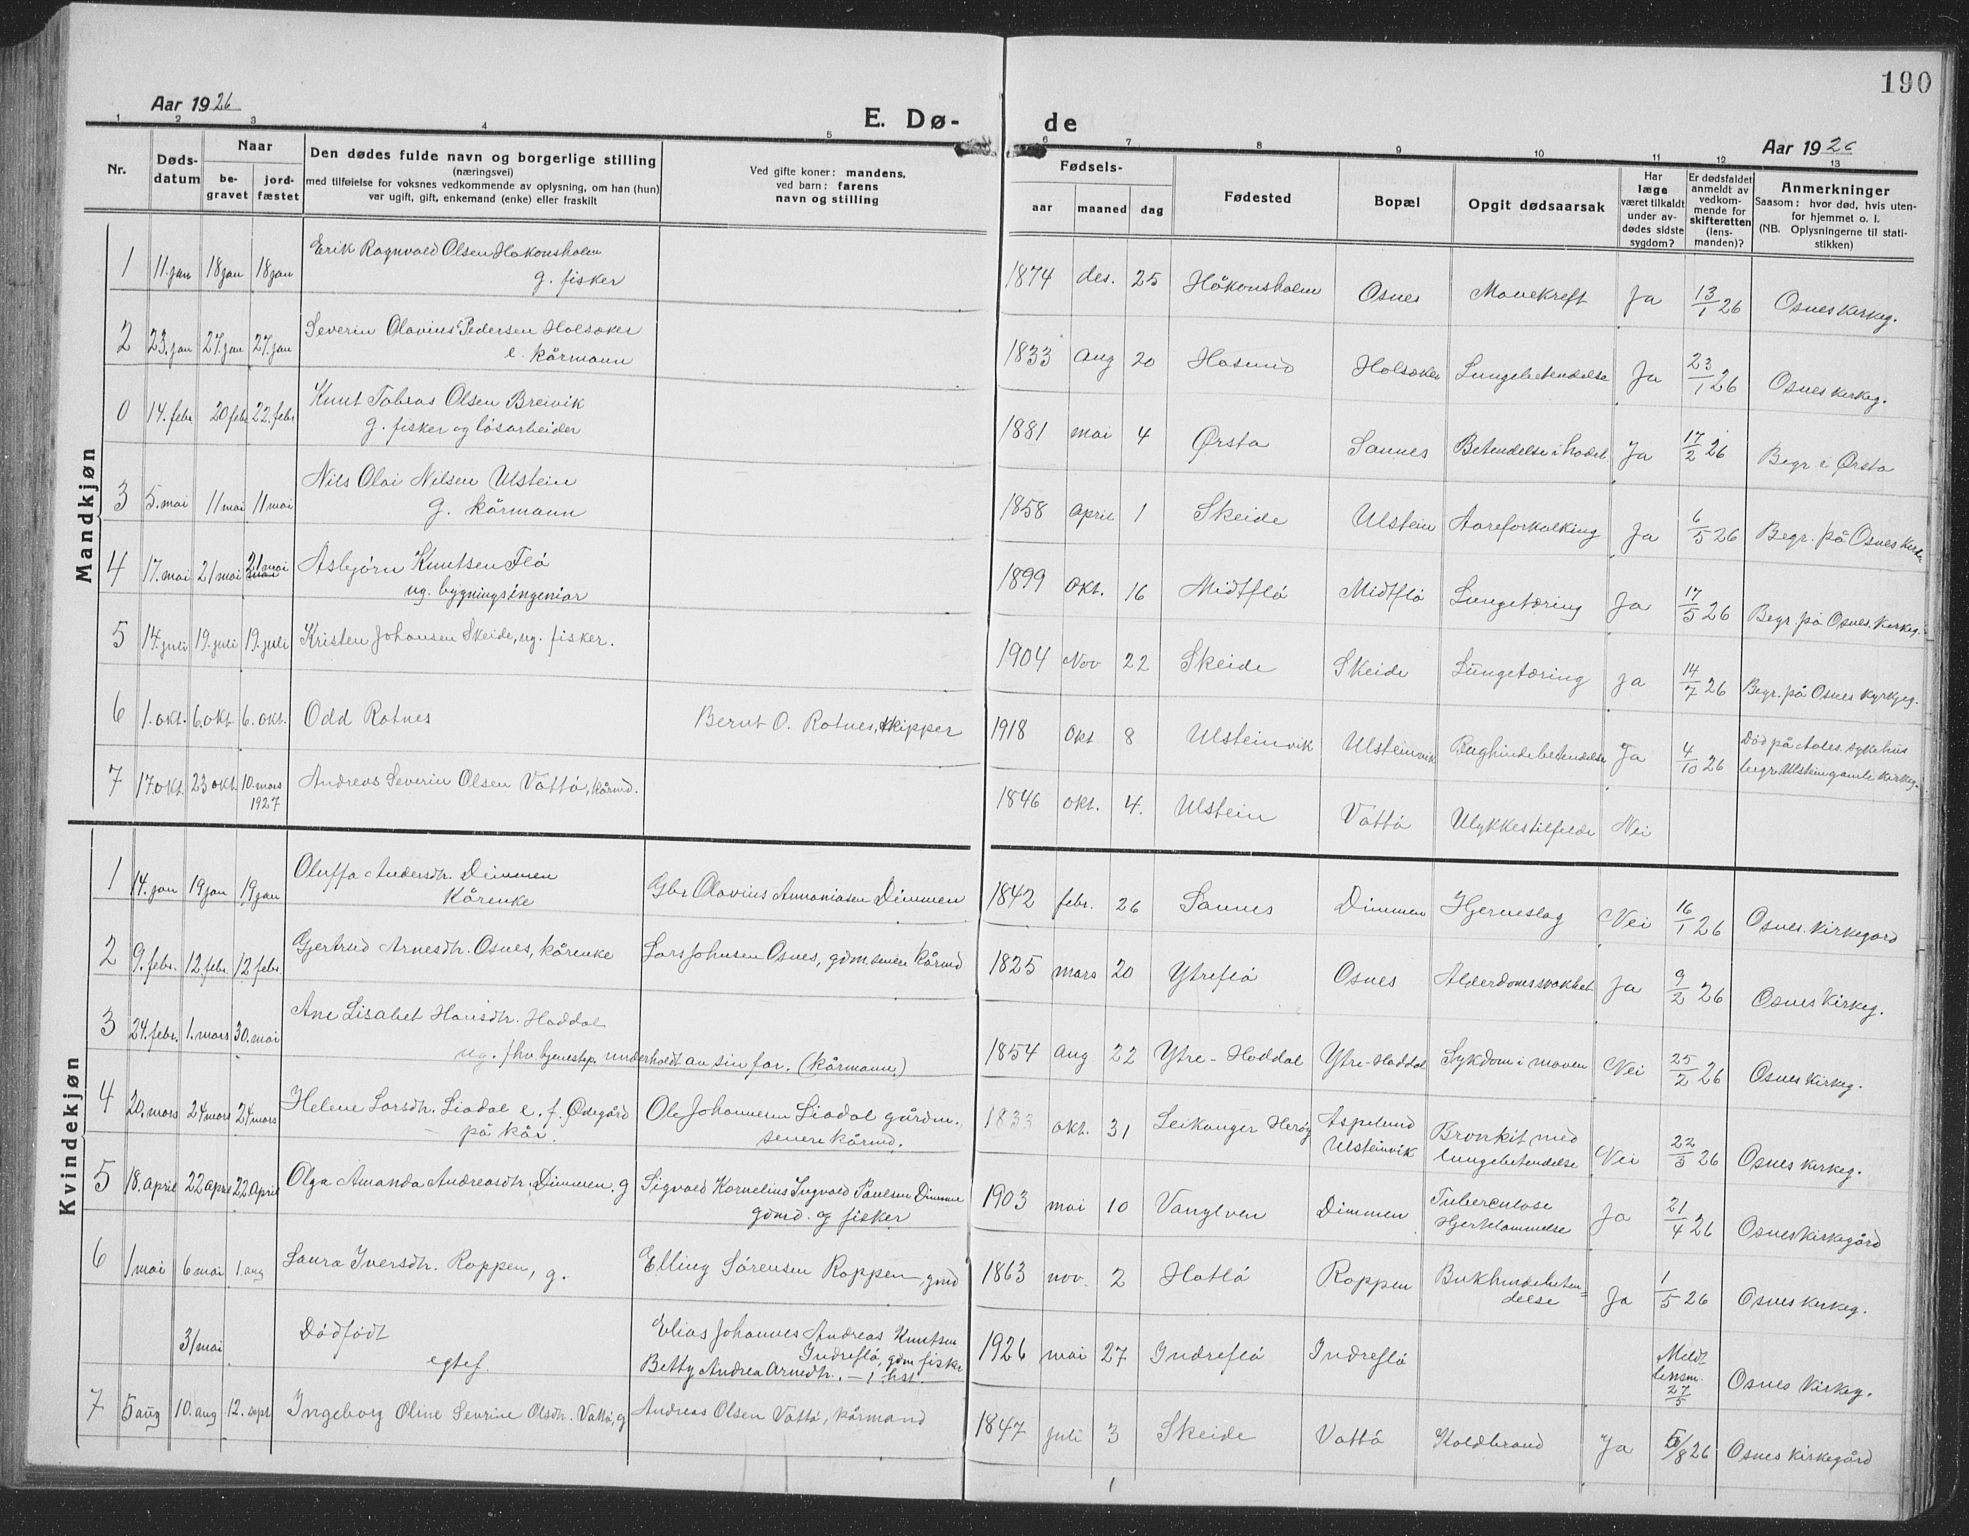 190
Aar 1926
E. Dø-
de
Aar 1926
1 2 3 4 5 6 7 8 9 10 11 12 13
Nr.
Døds-
datum
Naar
be-
gravet
jord-
fæstet
Den dødes fulde navn og borgerlige stilling
(næringsvei)
med tilføielse for voksnes vedkommende av oplysning, om han (hun)
var ugift, gift, enkemand (enke) eller fraskilt
Ved gifte koner: mandens,
ved barn: farens
navn og stilling
Fødsels-
aar maaned dag
Fødested
Bopæl
Opgit dødsaarsak
Har
læge
været tilkaldt
under av-
dødes sidste
sygdom?
Er dødsfaldet
anmeldt av
vedkom-
mende for
skifteretten
(lens-
manden)?
Anmerkninger
Saasom: hvor død, hvis uten-
for hjemmet o. l.
(NB. Oplysningerne til stati-
stikken)
Mandkjøn
1 11. jan 18 jan 18 jan Erik Ragnvald Olsen Håkonsholm
g. fisker
1874 des. 25 Håkonsholm Osnes Mavekreft Ja 13/1 26 Osnes kirkeg.
2 23. jan 27. jan 27. jan Severin Olavius Pedersen Holsæker
e. kårmann
1833 aug 20 Hasund Holsæker Lungebetendelse Ja 23/1 26 Osnes kirkeg.
0 14. febr 20 febr 22. febr Knut Tobias Olsen Breivik
g. fisker og løsarbeider
1881 mai 4 Ørsta Saunes Betendelse i Ja 17/2 26 Begr i Ørsta
3 5. mai 11 mai 11 mai Nils Olai Nilsen Ulstein
g. kårmann
1858 april 1 Skeide Ulstein Aareforkalking Ja 6/5 26 Begr. på Osnes
4 17. mai 21 mai 21 mai Asbjørn Knutsen Flø
ug. bygningsingeniør
1899 okt. 16 Midtflø Midtflø Lungetæring Ja 17/5 26 Begr. på Osnes. kirkeg.
5 14. juli 19. juli 19. juli Kristen Johansen Skeide, ug. fisker.
1904 Nov 22 Skeide Skeide Lungetæring Ja 14/7 26 Begr. på Osnes kyrkjeg.
6 1. okt. 6. okt. 6. okt. Odd Rotnes Bernt O. Rotnes, skipper
1918 okt 8 Ulsteinvik Ulsteinvik Bughindebetendelse Ja 4/10 26 Død på Aales. sykehus
begr. Ulstein gamle kirkeg.
7 17. okt. 23 okt. 10. mars
1927
Andreas Severin Olsen Vattø, kårmd.
1846 okt. 4. Ulstein Vattø Ulykkestilfelde Nei
Kvindekjøn
1 14. jan 19 jan 19 jan Oluffa Andersdtr. Dimmen
Kårenke
Gbr Olavius Annaniasen Dimmen
1842 febr. 26 Saunes Dimmen Hjerneslag Nei 16/1 26 Osnes. kirkegård
2 9. febr. 12. febr 12 febr. Gjertrud Arnesdtr. Osnes, kårenke Lars Johnsen Osnes, gdm senere kårmd
1825 mars 20 Ytreflø Osnes Alderdomssvakhet Ja 9/2 26 Osnes Kirkeg.
3 24. febr. 1. mars 30. mai Ane Lisabet Hansdtr. Haddal
ug. fhv tjenestep. underholdt av sin far. (kårmann.)
1854 aug 22 Ytre-Haddal Ytre-Haddal Sykdom i maven Nei 25/2 26 Osnes Kirkeg.
4 20. mars 24 mars 24 mars Helene Larsdtr. Liadal e. f. Ødegård
på kår.
Ole Johannesen Liadal gårdm.
senere kårmd.
1833 okt. 31 Leikanger Herøy Aspelund
Ulsteinvik
Bronkit med
lungebetendelse
Nei 22/3 26 Osnes kirkeg.
5 18. april 22 april 22. april Olga Amanda Andreasdtr. Dimmen. g Sigvald Kornelius Ingvald Paulsen Dimmen
gdmd. og fisker
1903 mai 10 Vanylven Dimmen Tuberculose
Hjertelammelse
Ja 21/4 26 Osnes Kirkegård
6 1 mai 6 mai 1. aug Laura Iversdtr. Røppen, g. Elling Sørensen Røppen gmd
1863 nov. 2 Hatlø Røppen Bukhindebeten-
delse
Ja 1/5 26 Osnes kirkeg.
31 mai Dødfødt
egtef.
Elias Johannes Andreas Knutsen
Indreflø, gdm fisker
Betty Andrea Arnedtr. – 1. hst.
1926 mai 27 Indreflø Indreflø Meldt
lensm.
27/5
Osnes Kirkeg.
7 5 aug 10. aug 12. sept Ingeborg Oline Sevrine Olsdtr. Vattø, g Andreas Olsen Vattø, kårmand
1847 juli 3 Skeide Vattø Koldbrand Ja 5/8 26 Osnes Kirkegård